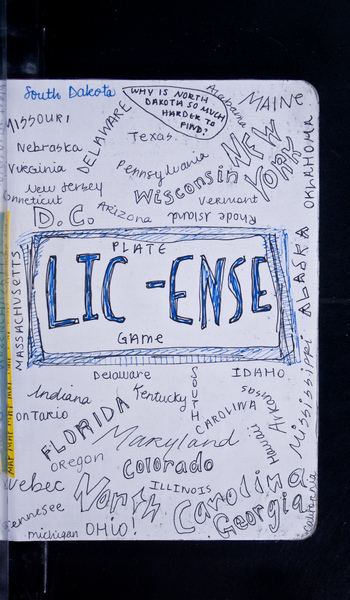 South Dakota
WHY IS NORTH
DAKOTA SO MUCH
HARDER TO
FIND?
Alabama
MAINE
MISSOURI
DELAWARE
Texas
NEW
YORK
OKLAHOMA
Nebraska
Virginia
Pennsylvania
New Jersey
Wisconsin
Connecticut
Vermont
D.C.
Arizona
Rhode Island
MASSACHUSETTS
PLATE
LIC-ENSE
GAME
ALASKA
Delaware
SOUTH
CAROLINA
IDAHO
Mississippi
Indiana
Kentucky
Arkansas
ONTARIO
FLORIDA
Hawaii
Maryland
OREGON
Colorado
Quebec
North
Carolina
ILLINOIS
Georgia
California
Tennessee
michigan
OHIO!